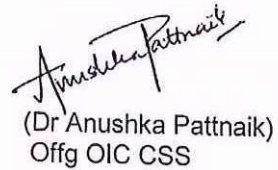 Anushka Pattnaik
(Dr Anushka Pattnaik)
Offg OIC CSS